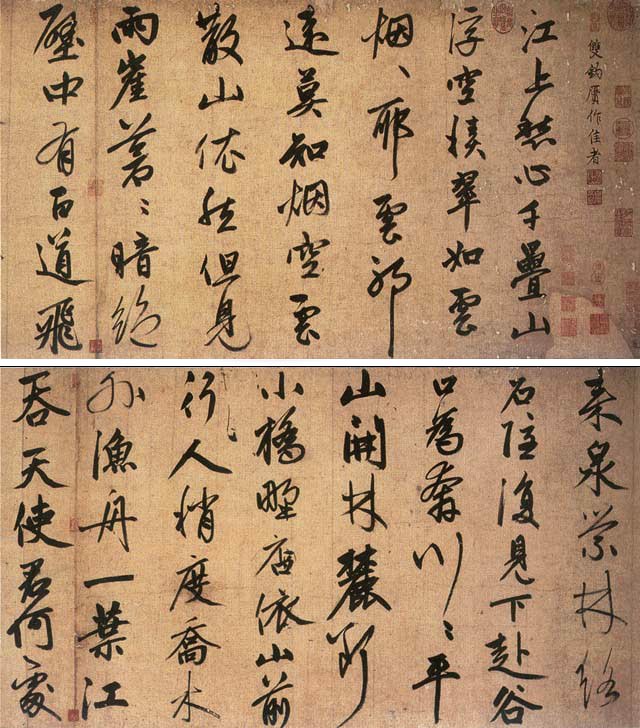 雙鈎贗作佳者
江上愁心千疊山
浮空積翠如雲
烟〻耶雲耶
遠莫知烟空雲
散山依然但見
兩崖蒼〻暗絕
壁中有百道飛
來泉縈林絡
石隱復見下赴谷
口為奔川〻平
山開林麓斷
小橋野店依山前
行人稍度喬木
外漁舟一葉江
吞天使君何處